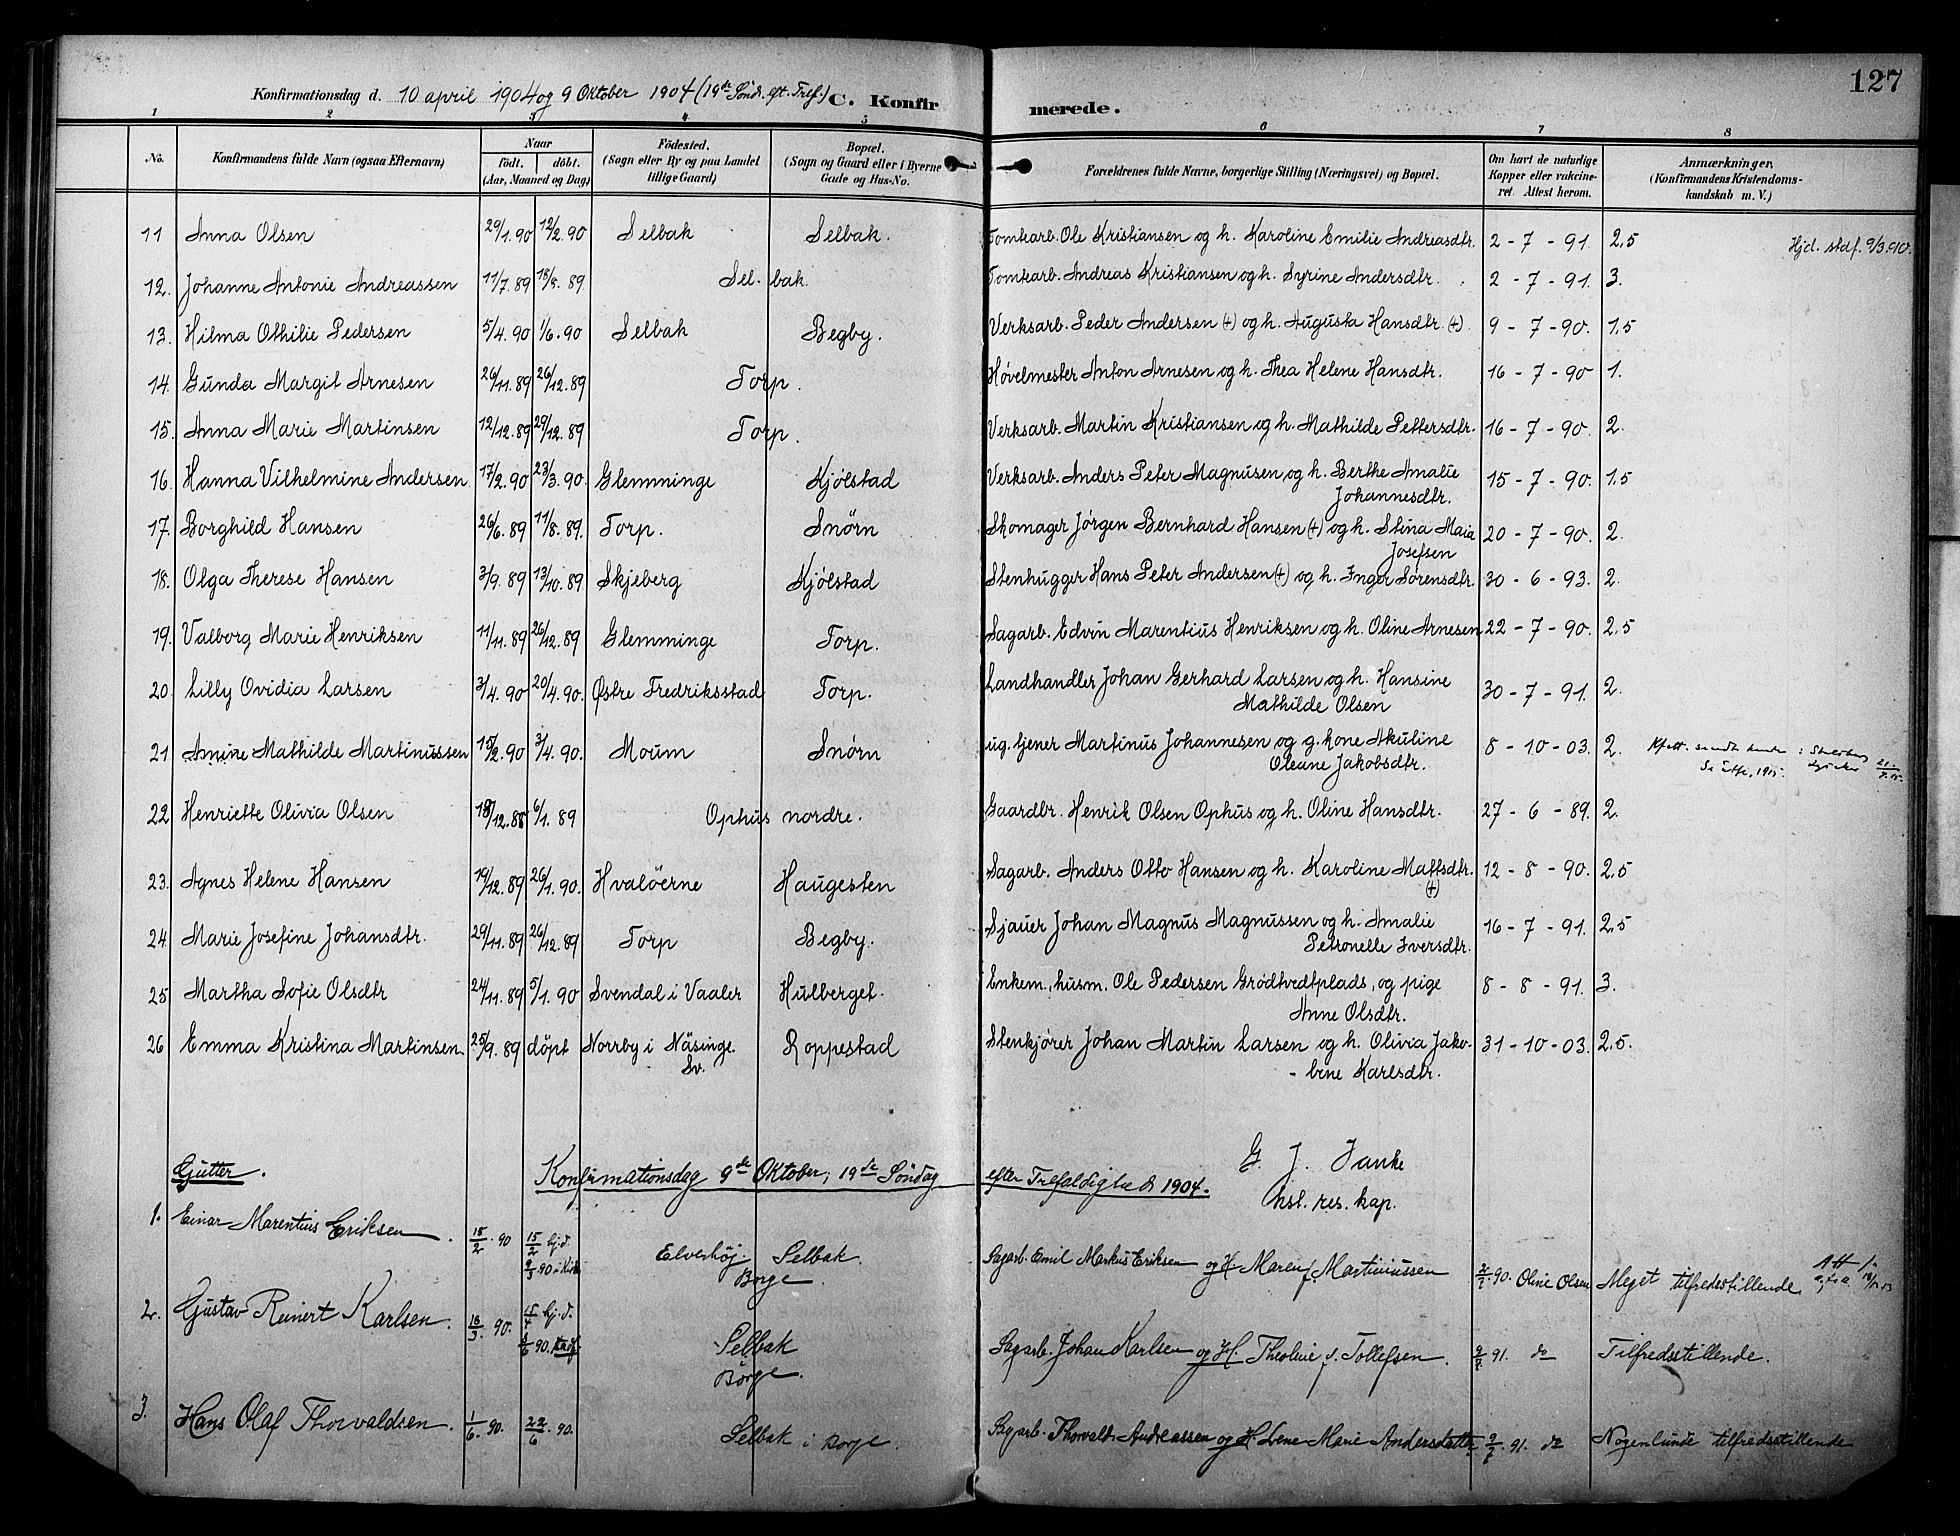 127
Konfirmationsdag d. 10 april 1904 og 9 Oktober 1904 (19de Sönd. eft. Tref.) C. Konfirmerede.
1 2 3 4 5 6 7 8
No. Konfirmandens fulde Navn (ogsaa Efternavn) Naar födt. döbt. (Aar, Maaned og Dag) Födested. (Sogn eller By og paa Landet tillige Gaard) Bopæl. (Sogn og Gaard eller i Byerne Gade og Hus-No. Forældrenes fulde Navne, borgerlige Stilling (Næringsvei) og Bopæl. Om havt de naturlige Kopper eller vakcineret. Attest herom. Anmærkninger. (Konfirmandens Kristendomskundskab m. V.)
11 Anna Olsen 29/1.90 12/2.90 Selbak Selbak. Tomtearb. Ole Kristiansen og h. Karoline Emilie Andreasdtr. 2-7-91. 2,5 Hjd. stdf. 9/3.90.
12. Johanne Antonie Andreassen 11/7.89 18/8.89 Selbak. Tomtearb. Andreas Kristiansen og h. Syrine Andersdtr. 2-7-91. 3.
13. Hilma Othilie Pedersen 5/4.90 1/6.90 Selbak Begby. Verksarb. Peder Andersen (+) og h. Augusta Hansdtr. (+). 9-7-90. 1,5
14. Gunda Margit Arnesen 26/11.89 26/12.89 Torp. Høvelmester Anton Arnesen og h. Thea Helene Hansdtr. 16-7-90 1.
15. Anna Marie Martinsen 12/12.89 29/12.89 Torp. Verksarb. Martin Kristiansen og h. Mathilde Pettersdtr. 16-7-90. 2.
16. Hanna Vilhelmine Andersen 17/2.90 23/3.90 Glemminge Kjølstad Verksarb. Anders Peter Magnusen og h. Berthe Amalie 15-7-90. 1,5
Johannesdtr.
17. Borghild Hansen 26/6.89 11/8.89 Torp. Snörn Skomager Jörgen Bernhard Hansen (+) og h. Stina Maia 20-7-90. 2.
Josefsen
18. Olga Therese Hansen 3/9.89 13/10.89 Skjeberg Kjölstad Stenhugger Hans Peter Andersen (+) og h. Inger Sörensdtr. 30-6-93. 2.
19. Valborg Marie Henriksen 11/11.89 26/12.89 Glemminge Torp. Sagarb. Edvin Marentius Henriksen og h. Oline Arnesen 22-7-90. 2,5
20. Lilly Ovidia Larsen 3/4.90 20/4.90 Østre Fredriksstad Torp. Landhandler Johan Gerhard Larsen og h. Hansine 30-7-91. 2.
Mathilde Olsen
21 Amine Mathilde Martinussen 15/2.90 3/4.90. Moum Snörn ug. tjener Martinus Johannesen og g. kone Akuline 8-10-03. 2.
Oleane Jakobsdtr.
22 Henriette Olivia Olsen 18/12.88 6/1.89 Ophus nordre. Gaardbr. Henrik Olsen Ophus og h. Oline Hansdtr. 27-6-89. 2.
23. Agnes Helene Hansen 19/12.89 26/1.90. Hvalöerne Haugesten Sagarb. Anders Otto Hansen og h. Karoline Mattsdtr. 12-8-90. 2,5
(+)
24. Marie Josefine Johansdtr. 29/11.89 26/12.89 Torp Begby. Sjauer Johan Magnus Magnussen og h. Amalie 16-7-91. 2,5
Petronelle Iversdtr.
25 Martha Sofie Olsdtr 24/11.89 5/1.90 Svendal i Vaaler Hulberget. Enkem., husm. Ole Pedersen Grödtvedtplads, og pige 8-8-91. 3.
Anne Olsdtr.
26 Emma Kristina Martinsen 25/9.89 döpt Norrby i Näsinge Sv. Roppestad Stenkjörer Johan Martin Larsen og h. Olivia Jako- 31-10-03. 2,5.
- bine Karlsdtr.
G. J. Janke
hst. res. kap.
Gutter. Konfirmationsdag 9de Oktober, 19de Söndag efter Trefoldighed 1904.
1. Einar Marentius Eriksen. 18/2.90 15/2 hj.d. 9/3.90 i Kirk Elvehöj. Selbak Borge. Sagarb. Emil Markus Eriksen og H Maren f. Martiniussen 2/7.90. Oline Olsen Meget tilfredsstillende.
2. Gustav Reinert Karlsen. 18/3.90. 15/4 hj.d. 8/6.90. Selbak Borge. Sagarb. Johan Karlsen og H Theoline f. Tollefsen. 9/7.91. do Tilfredsstillende.
3. Hans Olaf Thorvaldsen. 1/6.90. 22/6.90. Selbak i Borge. Sagarb. Thorvald Andreassen og H. Lene Marie Andersdatter 9/7.91. do Nogenlunde tilfredsstillende